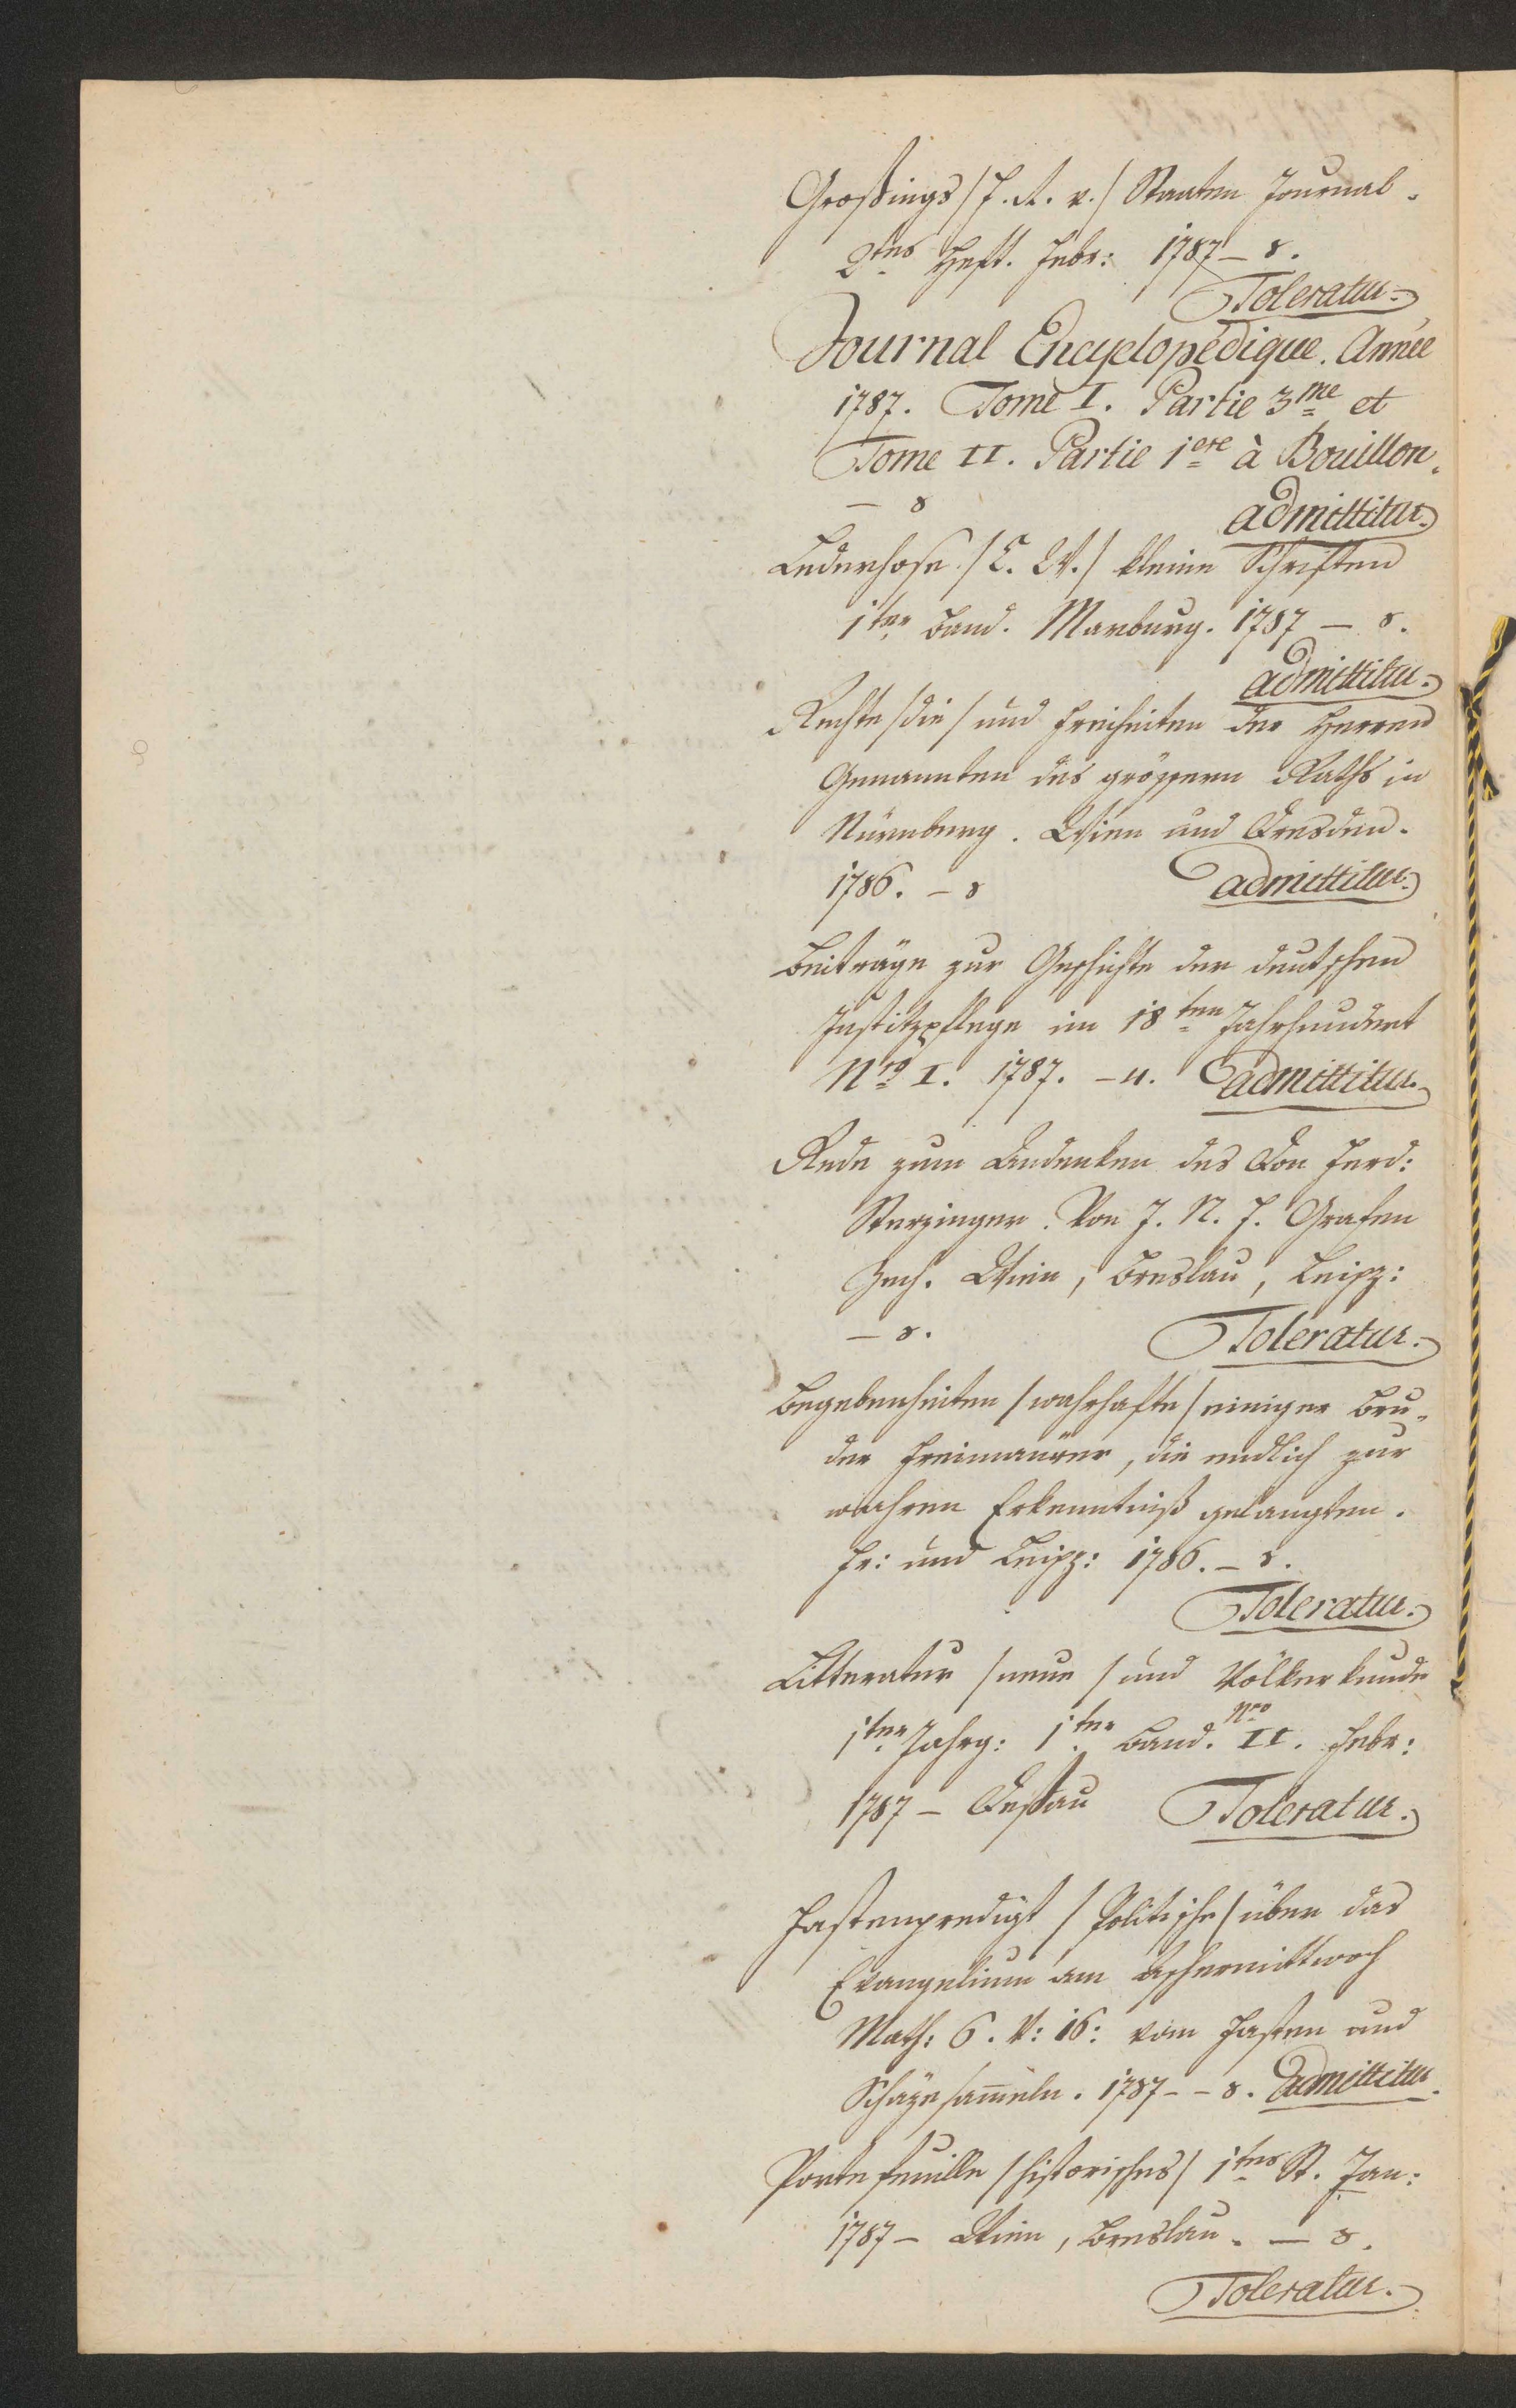 Großings /F. R. v./ Staaten Journal.
2tes Heft. Febr: 1787 - 8.
Toleratur.
Journal Encyclopédique. Année
1787. Tome I. Partie 3me et
Tome II. Partie 1ere à Bouillon.
- 8
admittitur.
Lederhose /C. W./ kleine Schriften
1ter Band. Marburg. 1787 - 8.
admittitur.
Rechte /die/ und Freiheiten der Herren
Genannten des grössern Raths in
Nürnberg. Wien und Dresden.
1786. - 8 admittitur.
Beiträge zur Geschichte der deutschen
Justitzpflege im 18ten Jahrhundert
Nro I. 1787. - 4. admittitur.
Rede zum Andenken des Don Ferd:
Sterzinger. Von J. N. F. Grafen
Zech. Wien, Breslau, Leipz:
- 8. Toleratur.
Begebenheiten /wahrhafte/ einiger Bru-
der Freimaurer, die endlich zur
wahren Erkenntniß gelangten.
Fr: und Leipz: 1786. - 8.
Toleratur.
Litteratur /neue/ und Völkerkunde
1ter Jahrg: 1ter Band. Nro II. Febr:
1787 - Deßau Toleratur.
Fastenpredigt /Politische/ über das
Evangelium am Aschermittwoch
Math: 6. V: 16: vom Fasten und
Schäze sam̄eln. 1787 - - 8. admittitur.
Portefeuille /historisches/ 1tes St. Jan:
1787 - Wien, Breslau. - 8.
Toleratur.